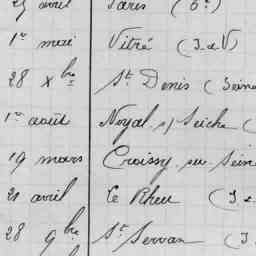 25 avril Paris (6e)
1er mai Vitré (I & V)
28 Xbre St Denis (Seine
1er août Noyal s/ Seiche (
19 mars Croissy sur Seine
21 avril Le Rheu (I &
28 9bre St Servan (I